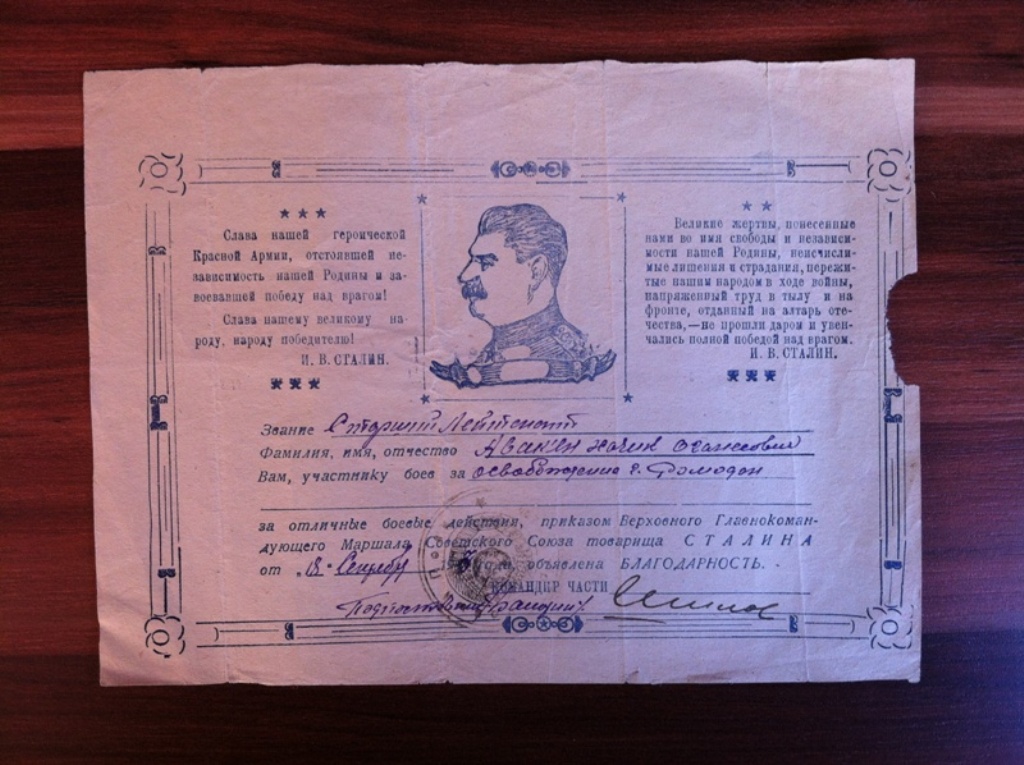 Слава нашей героической
Красной Армии, отстоявшей не-
зависимость нашей Родины и за-
воевавшей победу над врагом!
Слава нашему великому на-
роду, народу победителю!
И. В. СТАЛИН.
Великие жертвы, понесенные
нами во имя свободы и независи-
мости нашей Родины, неисчисли-
мые лишения и страдания, пережи-
тые нашим народом в ходе войны,
напряженный труд в тылу и на
фронте, отданный на алтарь оте-
чества,—не прошли даром и увен-
чались полной победой над врагом.
И. В. СТАЛИН.
Звание Старший Лейтенант
Фамилия, имя, отчество Авакян
Вам, участнику боев за освобождение г.
за отличные боевые действия, приказом Верховного Главнокоман-
дующего Маршала Советского Союза товарища СТАЛИНА
от „18" 194 года, объявлена БЛАГОДАРНОСТЬ.
КОМАНДИР ЧАСТИ